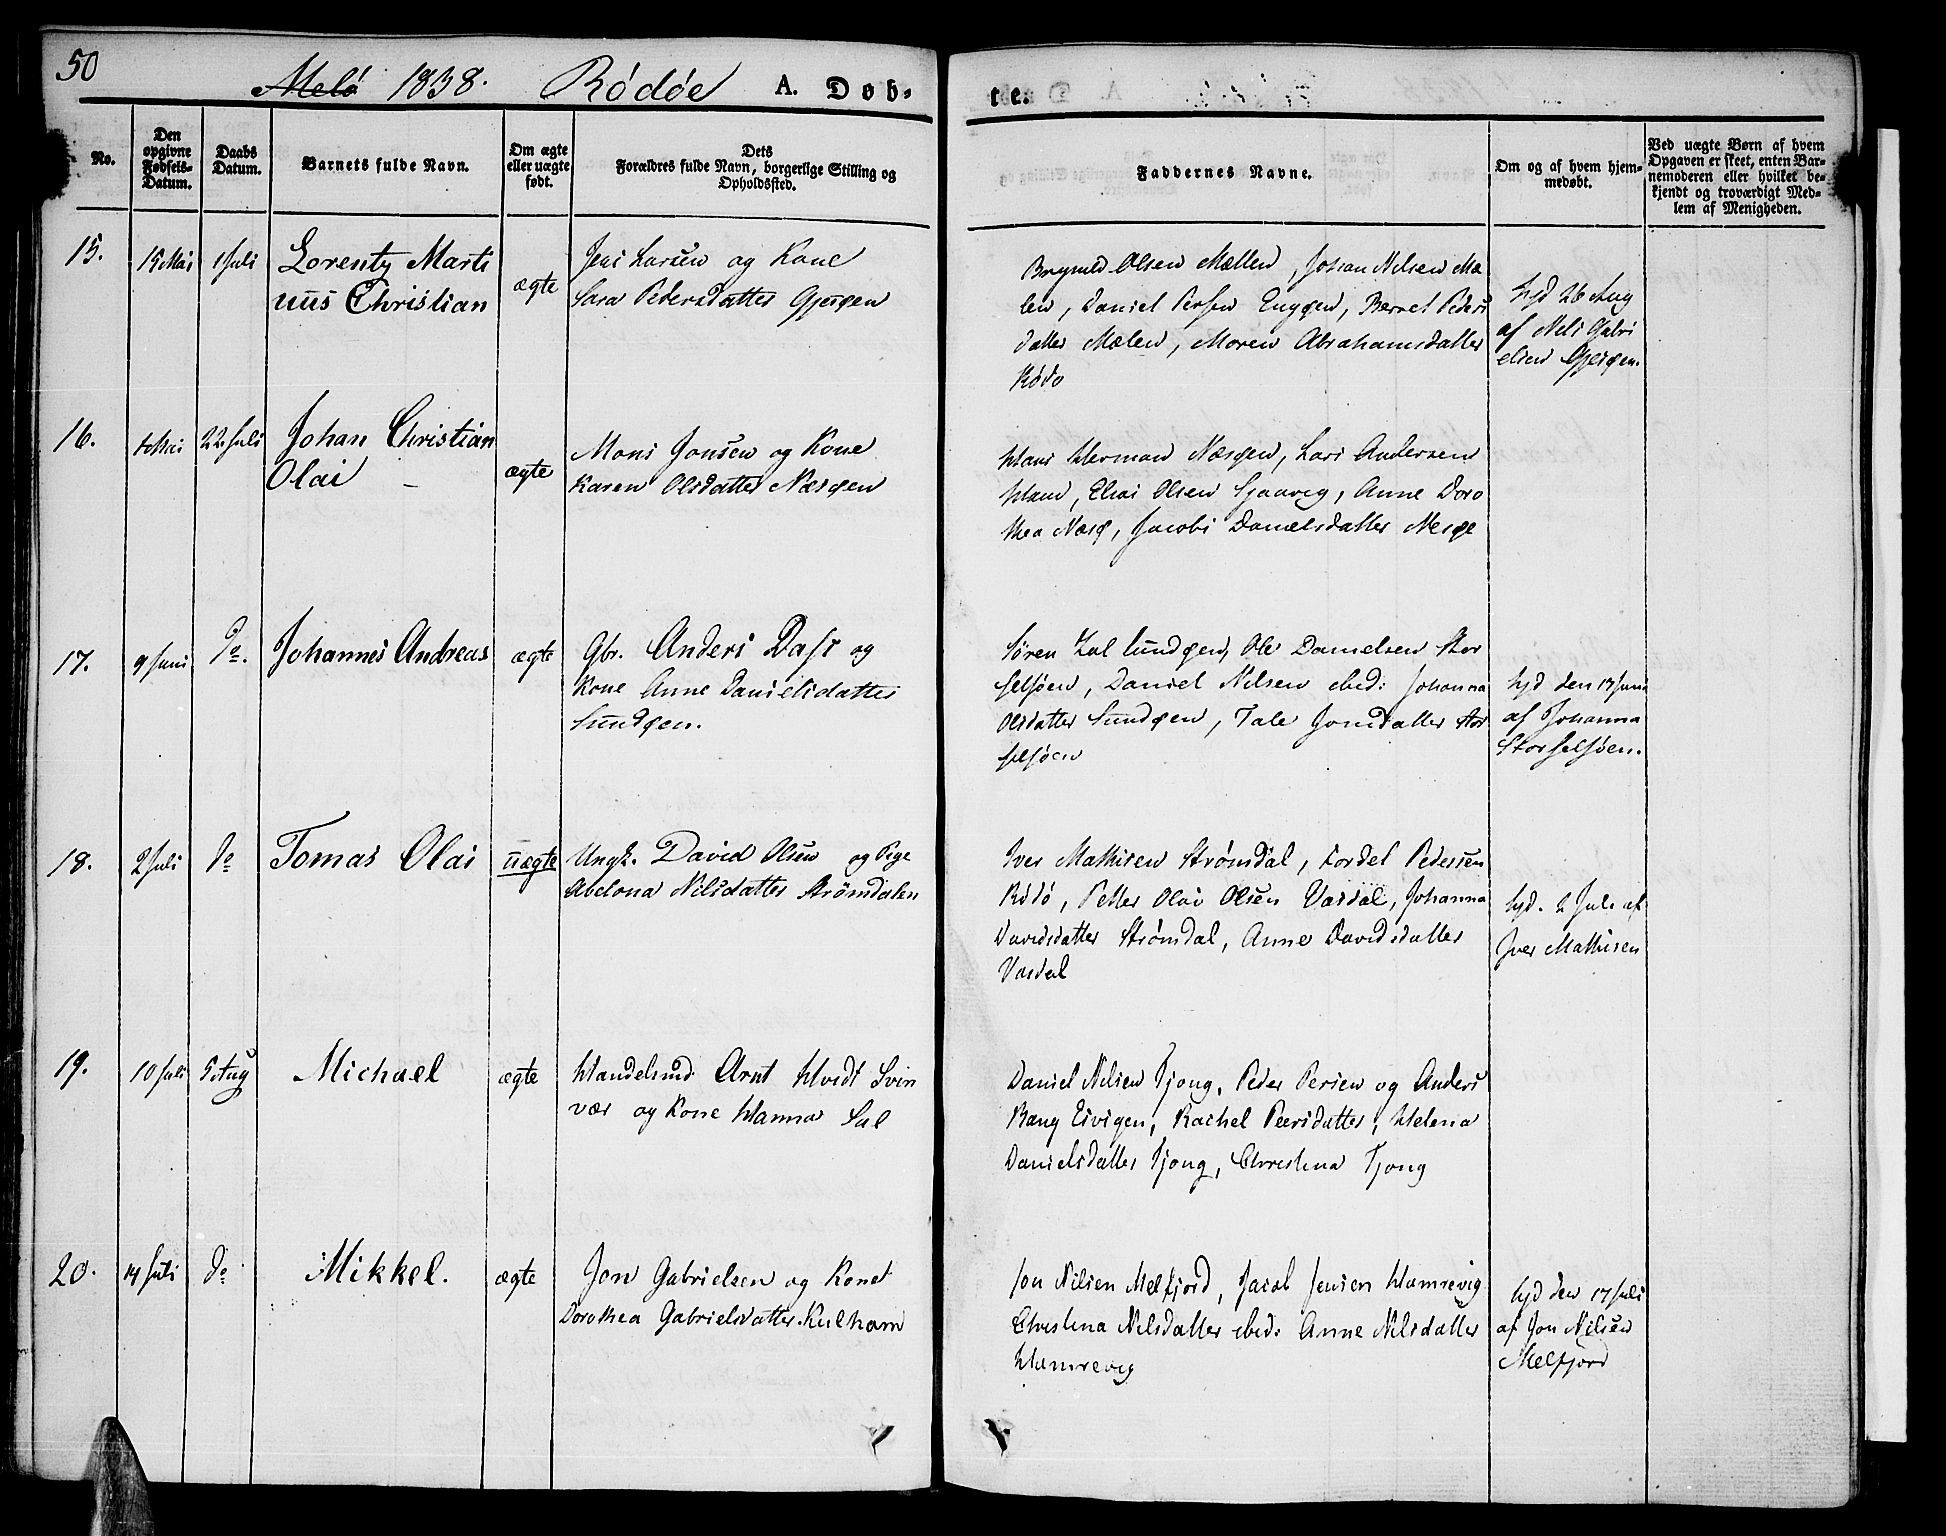 50
Melø 1838. Rödöe A. Døb-
te.
No.
Den opgivne Fødsels-Datum.
Daabs Datum.
Barnets fulde Navn.
Om ægte eller uægte født.
Dets Forældres fulde Navn, borgerlige Stilling og Opholdssted.
Faddernes Navne.
Om og af hvem hjemmedøbt.
Ved uægte Børn af hvem Opgaven er skeet, enten Barnemoderen eller hvilket bekjendt og troværdigt Medlem af Menigheden.
15.
15 Mai
1 Juli
Lorentz Marti
nus Christian
ægte
Jens Larsen og Kone
Sara Pedersdatter Gjerøen
Olsen Mællen, Johan Nilsen Mæ
len, Daniel Persen Engøen, Berret Peders
datter Mælen, Maren Abrahamsdatter
Rödö
hjd 26 Aug
af Nels Gabri
elsen Gjerøen.
16.
Mai
22 Juli
Johan Christian
Olai
ægte
Mons Jonsen og Kone
Karen Olsdatter Næsøen
Hans Herman Næsøen, Lars Andersen
Hland, Elias Olsen Sjaavig, Anne Doro
thea Næsø, Jacobi Danielsdatter Nesøe
17.
9 Juni
do.
Johannes Andreas
ægte
Gbr. Anders Dass og
Kone Anne Danielsdatter
Sundøen.
Søren Zal Sundøen, Ole Danielsen Stor
selsøen, Daniel Nilsen ibid: Johanna
Olsdatter Sundøen, Tale Jonsdatter Stor
selsøen
hjd den 17 Juni
af Johanna
Storselsøen.
18.
2 Juli
do
Tomas Olai
uægte
Ungk. David Olsen og Pige
Abelona Nilsdatter Strömdalen
Iver Mathisen Strömdal, Tordel Pedersen
Rödö, Petter Olai Olsen Vasdal, Johanna
Davidsdatter Strömdal, Anne Davidsdatter
Vasdal
hjd. 2 Juli af
Iver Mathisen
19.
10 Juli
5 Aug
Michael
ægte
Handelsmd Arnt Hvidt Svin
vær og Kone Hanna Sal
Daniel Nilsen Tjong, Peder Persen og Anders
Bang Eivigen, Rachel Peersdatter, Helena
Danielsdatter Tjong, Christina Tjong
20.
14 Juli
do
Mikkel.
ægte
Jon Gabrielsen og Konet
Dorothea Gabrielsdatter Kilham
Jon Nilsen Melfjord, Jacob Jensen Hamrevig
Christina Nilsdatter ibid: Anne Nilsdatter
Hamrevig
hjd den 17 Juli
af Jon Nilsen
Melfjord